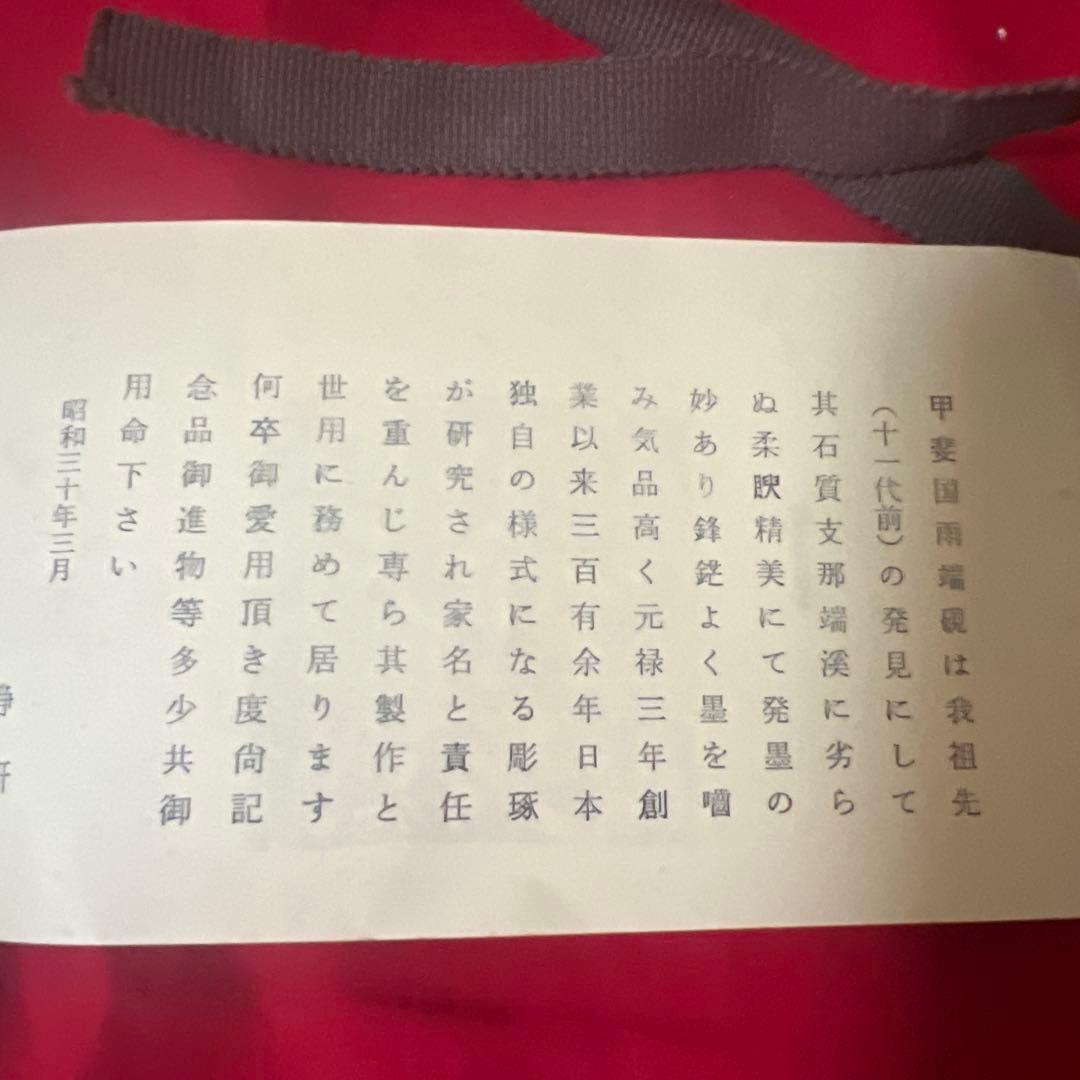 甲斐国雨端硯は我祖先
(十一代前)の発見にして
其石質支那端溪に劣ら
ぬ柔腴精美にて発墨の
妙あり鋒鋩よく墨を嚙
み気品高く元禄三年創
業以来三百有余年日本
独自の様式になる彫琢
が研究され家名と責任
を重んじ専ら其製作と
世用に務めて居ります
何卒御愛用頂き度尙記
念品御進物等多少共御
用命下さい
昭和三十年三月